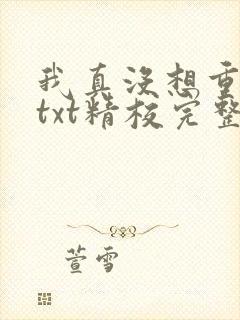 我真没想重
txt精校完整
萱雪